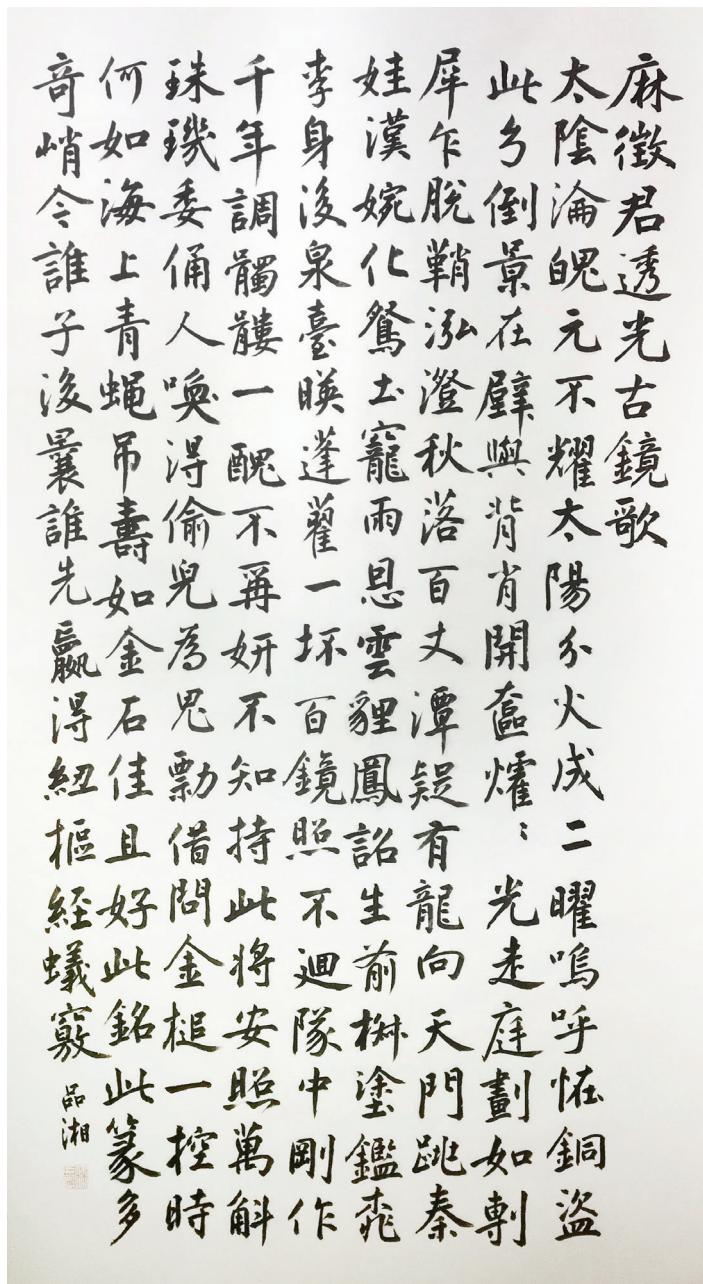 麻徵君透光古鏡歌
太陰淪魄元不耀太陽分火成二曜嗚呼怪銅盜
此倒景在壁與背肖開奩爟〻光走庭劃如剸
犀乍脫鞘泓澄秋落百丈潭疑有龍向天門跳秦
娃漢婉化鴛土寵雨恩雲貍鳳詔生前椒塗鑑桃
李身後泉臺暎蓬藋一抔百鏡照不迴隊中剛作
千年調髑髏一醜不再妍不知持此將安照萬斛
珠璣委俑人喚得偷兒為鬼剽借問金槌一控時
何如海上青蠅吊壽如金石佳且好此銘此篆多
奇峭令誰子後曩誰先嬴得紐樞經蟻竅
品湘